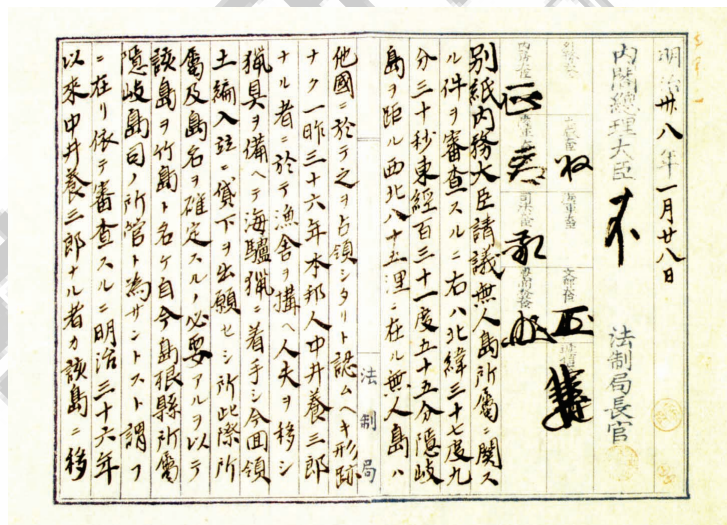 明治卅八年一月廿八日
内閣總理大臣
法制局長官
外務大臣
大藏大臣
海軍大臣
文部大臣
内務大臣
陸軍大臣
司法大臣
別紙内務大臣請議無人島所屬ニ關ス
ル件ヲ審査スルニ右ハ北緯三十七度九
分三十秒東經百三十一度五十五分隱岐
島ヲ距ル西北八十五浬ニ在ル無人島ハ
他國ニ於テ之ヲ占領シタリト認ムヘキ形跡
ナク一昨三十六年本邦人中井養三郎
ナル者ニ於テ漁舎ヲ構ヘ人夫ヲ移シ
猟具ヲ備ヘテ海驢猟ニ着手シ今回領
土編入竝ニ貸下ヲ出願セシ所此際所
屬及島名ヲ確定スルノ必要アルヲ以テ
該島ヲ竹島ト名ケ自今島根縣所屬
隱岐島司ノ所管ト為サントスト謂フ
ニ在リ依テ審査スルニ明治三十六年
以来中井養三郎ナル者カ該島ニ移
法制局